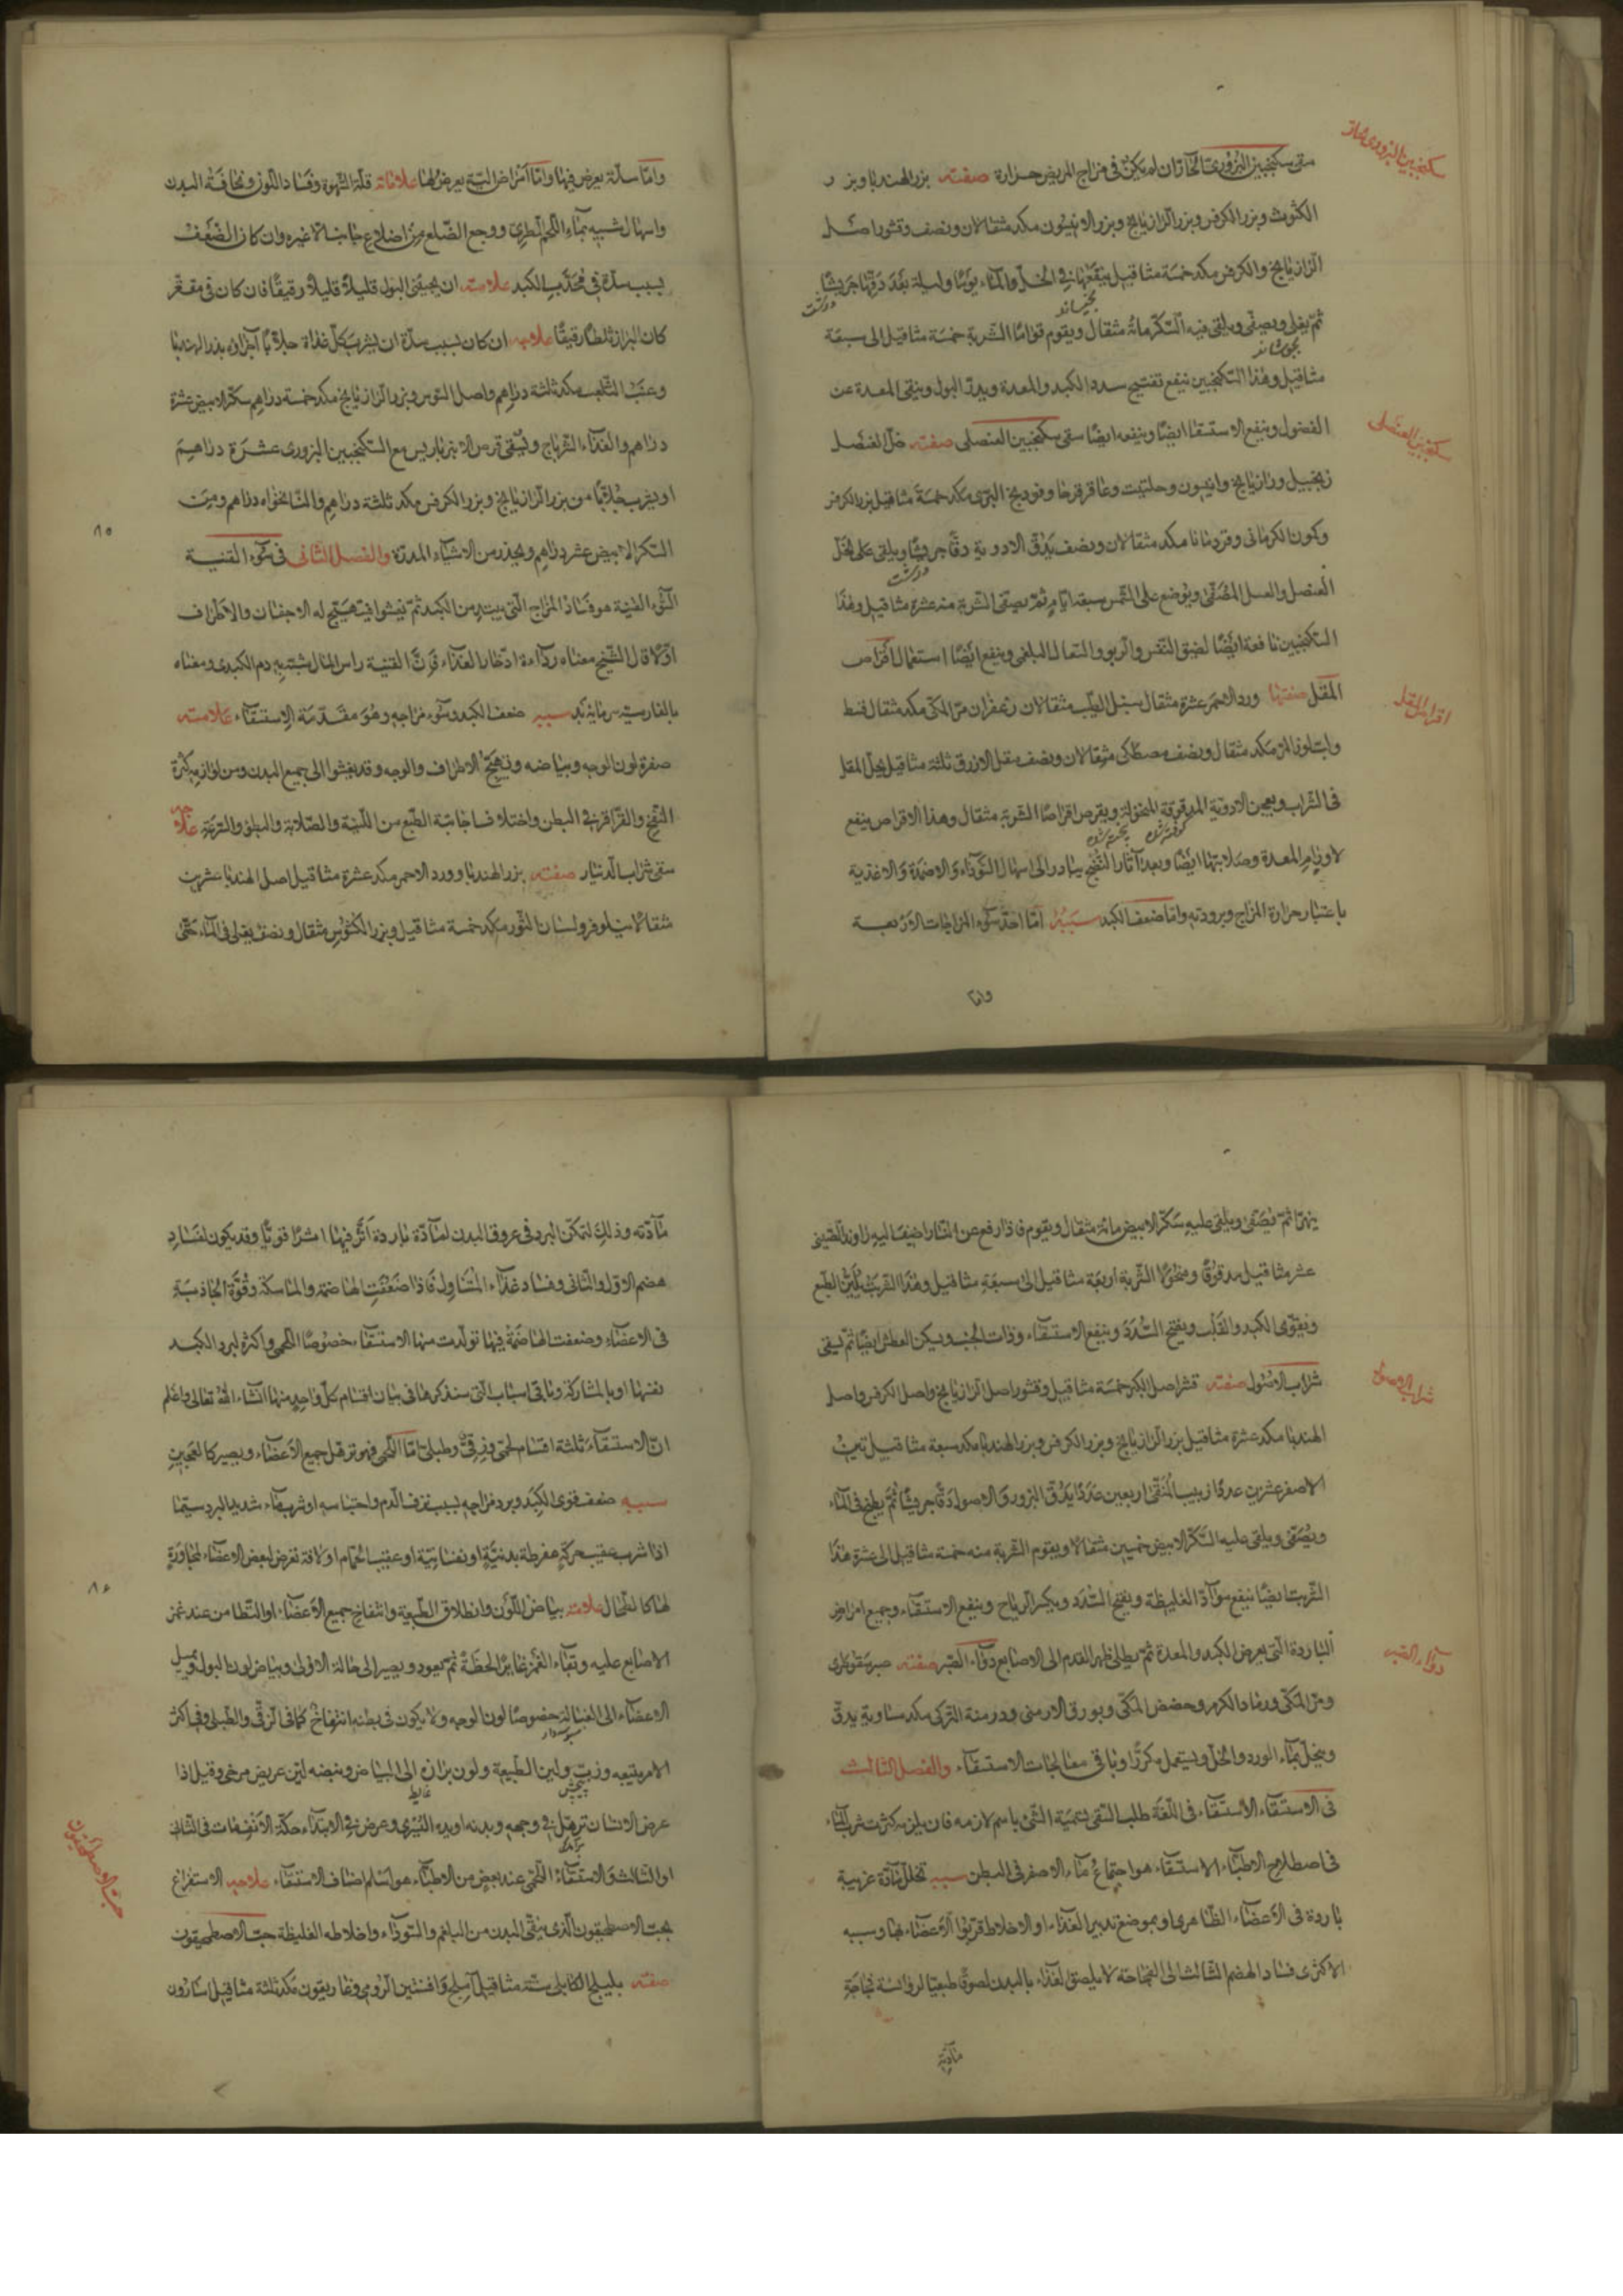 سكنجبين البزوري الحار
سقى سكنجبين البزوري الحار ان لم يكن في مزاج المريض حرارة صفته بزر الهندبا وبزر
الكثوث وبزر الكرفس وبزر الرازيانج وبزر الانيسون مكد مثقالان ونصف وقشور اصل
الرازيانج والكرفس مكد خمسة مثاقيل ينقعها في الخل والماء يومًا وليلة بعد دقها جريشًا
ثم يغلى ويصفى ويلقى فيه السكر مائة مثقال ويقوم قوامًا الشربة خمسة مثاقيل الى سبعة
مثاقيل وهذا السكنجبين ينفع تفتيح سدد الكبد والمعدة ويدر البول وينقى المعدة عن
الفضول وينفع الاستسقا ايضًا وينفعه ايضًا سقى سكنجبين العنصلى صفته خل العنصل
سكنجبين العنصلى
زنجبيل ورازيانج وانيسون وحلتيت وعاقرقرحا وفودنج البرى مكد خمسة مثاقيل بزر الكرفس
وكمون الكرمانى وقردمانا مكد مثقالان ونصف يدق الادوية دقًا جريشًا ويلقى على الخل
العنصل والعسل المصفى ويوضع على الشمس سبعة ايام ثم يصفى الشربة منه عشرة مثاقيل وهذا
السكنجبين نافعة ايضًا لضيق النفس والربو والسعال البلغمى وينفع ايضًا استعمال اقراص
المقل صفتها ورد الاحمر عشرة مثقال سنبل الطيب مثقالان زعفران مر المكى مكد مثقال قسط
اقراص المقل
ولوز المر مكد مثقال ونصف مصطكى مثقالان ونصف مقل الازرق ثلثة مثاقيل يحل المقل
فى الشراب ويعجن الادوية المدقوقة المنخولة ويقرص اقراصًا الشربة مثقال وهذا الاقراص ينفع
لاورام المعدة وصلابتها ايضًا وبعد آثار النضج يبادر الى اسهال السوداء والاضمدة والاغذية
باعتبار حرارة المزاج وبرودته واما ضعف الكبد سببه اما احد سوء المزاجات الاربعة
واما
واما سدة يعرض فيها واما امراض التى يعرض لها علاماته قلة الشهوة وفساد اللون ونحافة البدن
واسهال شبيه بماء اللحم الطرى ووجع الضلع من اضلاع جانبه لا غيره وان كان الضعف
بسبب سدة فى محدب الكبد علامته ان يجىء البول قليلاً قليلاً رقيقًا فان كان فى مقعر
كان البراز رقيقًا علاجه ان كان بسبب سدة ان يشرب كل غداة بزر الهندبا
وعنب الثعلب مكد ثلثة دراهم واصل السوس وبزر الرازيانج مكد خمسة دراهم سكر الابيض عشرة
دراهم والغذاء الزرباج ويسقى قرص الانبرباريس مع السكنجبين البزورى عشرة دراهم
او يشرب جلابًا من بزر الرازيانج وبزر الكرفس مكد ثلثة دراهم والنانخواه دراهم ومن
٨٥
السكر الابيض عشر دراهم ويحذر من الاشياء المدرة والفصل الثانى فى سوء القنية
السوء القنية هو فساد المزاج التى يبتدء من الكبد ثم يفشوا فيتهيج له الاجفان والاطراف
اولا قال الشيخ معناه رداءة ادخار الغذاء فان القنية راس المال شبه به دم الكبدى ومعناه
بالفارسية سببه ضعف الكبد وسوء مزاجه وهو مقدمة الاستسقاء علامته
صفرة لون الوجه وبياضه وتهيج الاطراف والوجه وقد يفشوا الى جميع البدن ومن لوازمه كثرة
النفخ والقراقر فى البطن واختلاف اجابة الطبع من اللينة والصلابة والبطؤ والسرعة علاجه
سقى شراب الدينار صفته بزر الهندبا وورد الاحمر مكد عشرة مثاقيل اصل الهندبا عشرين
مثقالا نيلوفر ولسان الثور مكد خمسة مثاقيل وبزر الكشوث مثقال ونصف يغلى فى الماء حتى
يتهرا ثم يصفى ويلقى عليه سكر الابيض مائة مثقال ويقوم فاذا رفع عن النار اضيف اليه راوند الصينى
عشر مثاقيل مدقوقًا ومنخولا الشربة اربعة مثاقيل الى سبعة مثاقيل وهذا الشربت يلين الطبع
ويقوى الكبد والقلب ويفتح السدد وينفع الاستسقاء وذات الجنب ويسكن العطش ايضًا ثم يسقى
شراب الاصول صفته قشر اصل الكبر خمسة مثاقيل وقشور اصل الرازيانج واصل الكرفس واصل
شراب الاصول
الهندبا مكد عشرة مثاقيل بزر الرازيانج وبزر الكرفس وبزر الهندبا مكد سبعة مثاقيل تين
الاصفر عشرين عددًا زبيب المنقى اربعين عددًا يدق البزور والاصول دقًا جريشًا ثم يطبخ فى الماء
ويصفى ويلقى عليه السكر الابيض خمسين مثقالا ويقوم الشربة منه خمسة مثاقيل الى عشرة هذا
الشربت ايضًا ينفع مواد الغليظة ويفتح السدد ويكسر الرياح وينفع الاستسقاء وجميع امراض
الباردة التى يعرض الكبد والمعدة ثم يطلى ظهر القدم الى الاصابع دواء الصبر صفته صبر سقوطرى
دواء الصبر
ومر المكى ورماد الكرم وحضض المكى وبورق الارمنى ودرمنة التركى مكد مساوية يدق
وينخل بماء الورد والخل ويستعمل مكررًا وباقى معالجات الاستسقاء والفصل الثالث
فى الاستسقاء الاستسقاء فى اللغة طلب السقى تسمية الشئ باسم لازمه فان يلزمه كثرت شرب الماء
فى اصطلاح الاطباء الاستسقاء هو اجتماع ماء الاصفر فى البطن سببه تخلل مادة غريبة
باردة فى الاعضاء الظاهرى او بموضع تدبير الغذاء او الاخلاط فربوا الاعضاء بها وسببه
الاكثرى فساد الهضم الثالث الى الفجاجة لا يلصق الغذاء بالبدن لصوقًا طبيعيًا
مادته
مادته وذلك لتمكن البرد فى عروق البدن لمادة باردة اثر فيها اثرًا قويًا وقد يكون لفساد
هضم الاول والثانى وفساد غذاء المتناول فاذا ضعفت الهاضمة والماسكة وقوة الجاذبة
فى الاعضاء وضعفت الهاضمة فيها تولدت منها الاستسقاء خصوصًا اللحمى واكثره لبرد الكبد
نفسها او بالمشاركة وباقى اسباب التى سنذكرها فى بيان اقسام كل واحد منها انشاء الله تعالى واعلم
ان الاستسقاء ثلثة اقسام لحمى وزقى وطبلى اما اللحمى فهو ترهل جميع الاعضاء ويصير كالعجين
سببه ضعف قوى الكبد وبرد مزاجه بسبب نزف الدم واحتباسه او شرب ماء شديد البرد سيما
اذا شرب عقيب حركة مفرطة بدنية او نفسانية او عقيب الحمام او لافة تعرض لبعض الاعضاء المجاورة
٨٦
لها كالطحال علامته بياض اللون وانطلاق الطبيعة وانتفاخ جميع الاعضاء او التطامن عند غمز
الاصابع عليه وبقاء الغمز غايرًا لحظة ثم يعود ويصير الى حالة الاولى وبياض لون البول ويميل
الاعضاء الى خصوصًا لون الوجه ولا يكون فى بطنه انتفاخ كما فى الزقى والطبلى وفى اكثر
الامر يتبعه ولين الطبيعة ولون برازه الى البياض ونبضه لين عريض مرخى وقيل اذا
عرض الانسان ترهل فى وجهه وبدنه اويده اليسرى وعرض فى الابتداء حكة الانف مات فى الثانى
او الثالث والاستسقاء اللحمى عند بعض من الاطباء هو اسلم اصناف الاستسقاء علاجه الاستفراغ
حب الاصطمحيقون
بحب الاصطمحيقون الذى ينقى البدن من البلغم والسوداء واخلاطه الغليظة حب الاصطمحيقون
صفته هليلج الكابلى ستة مثاقيل آملج وافسنتين الرومى وغاريقون مكد ثلثة مثاقيل اسارون